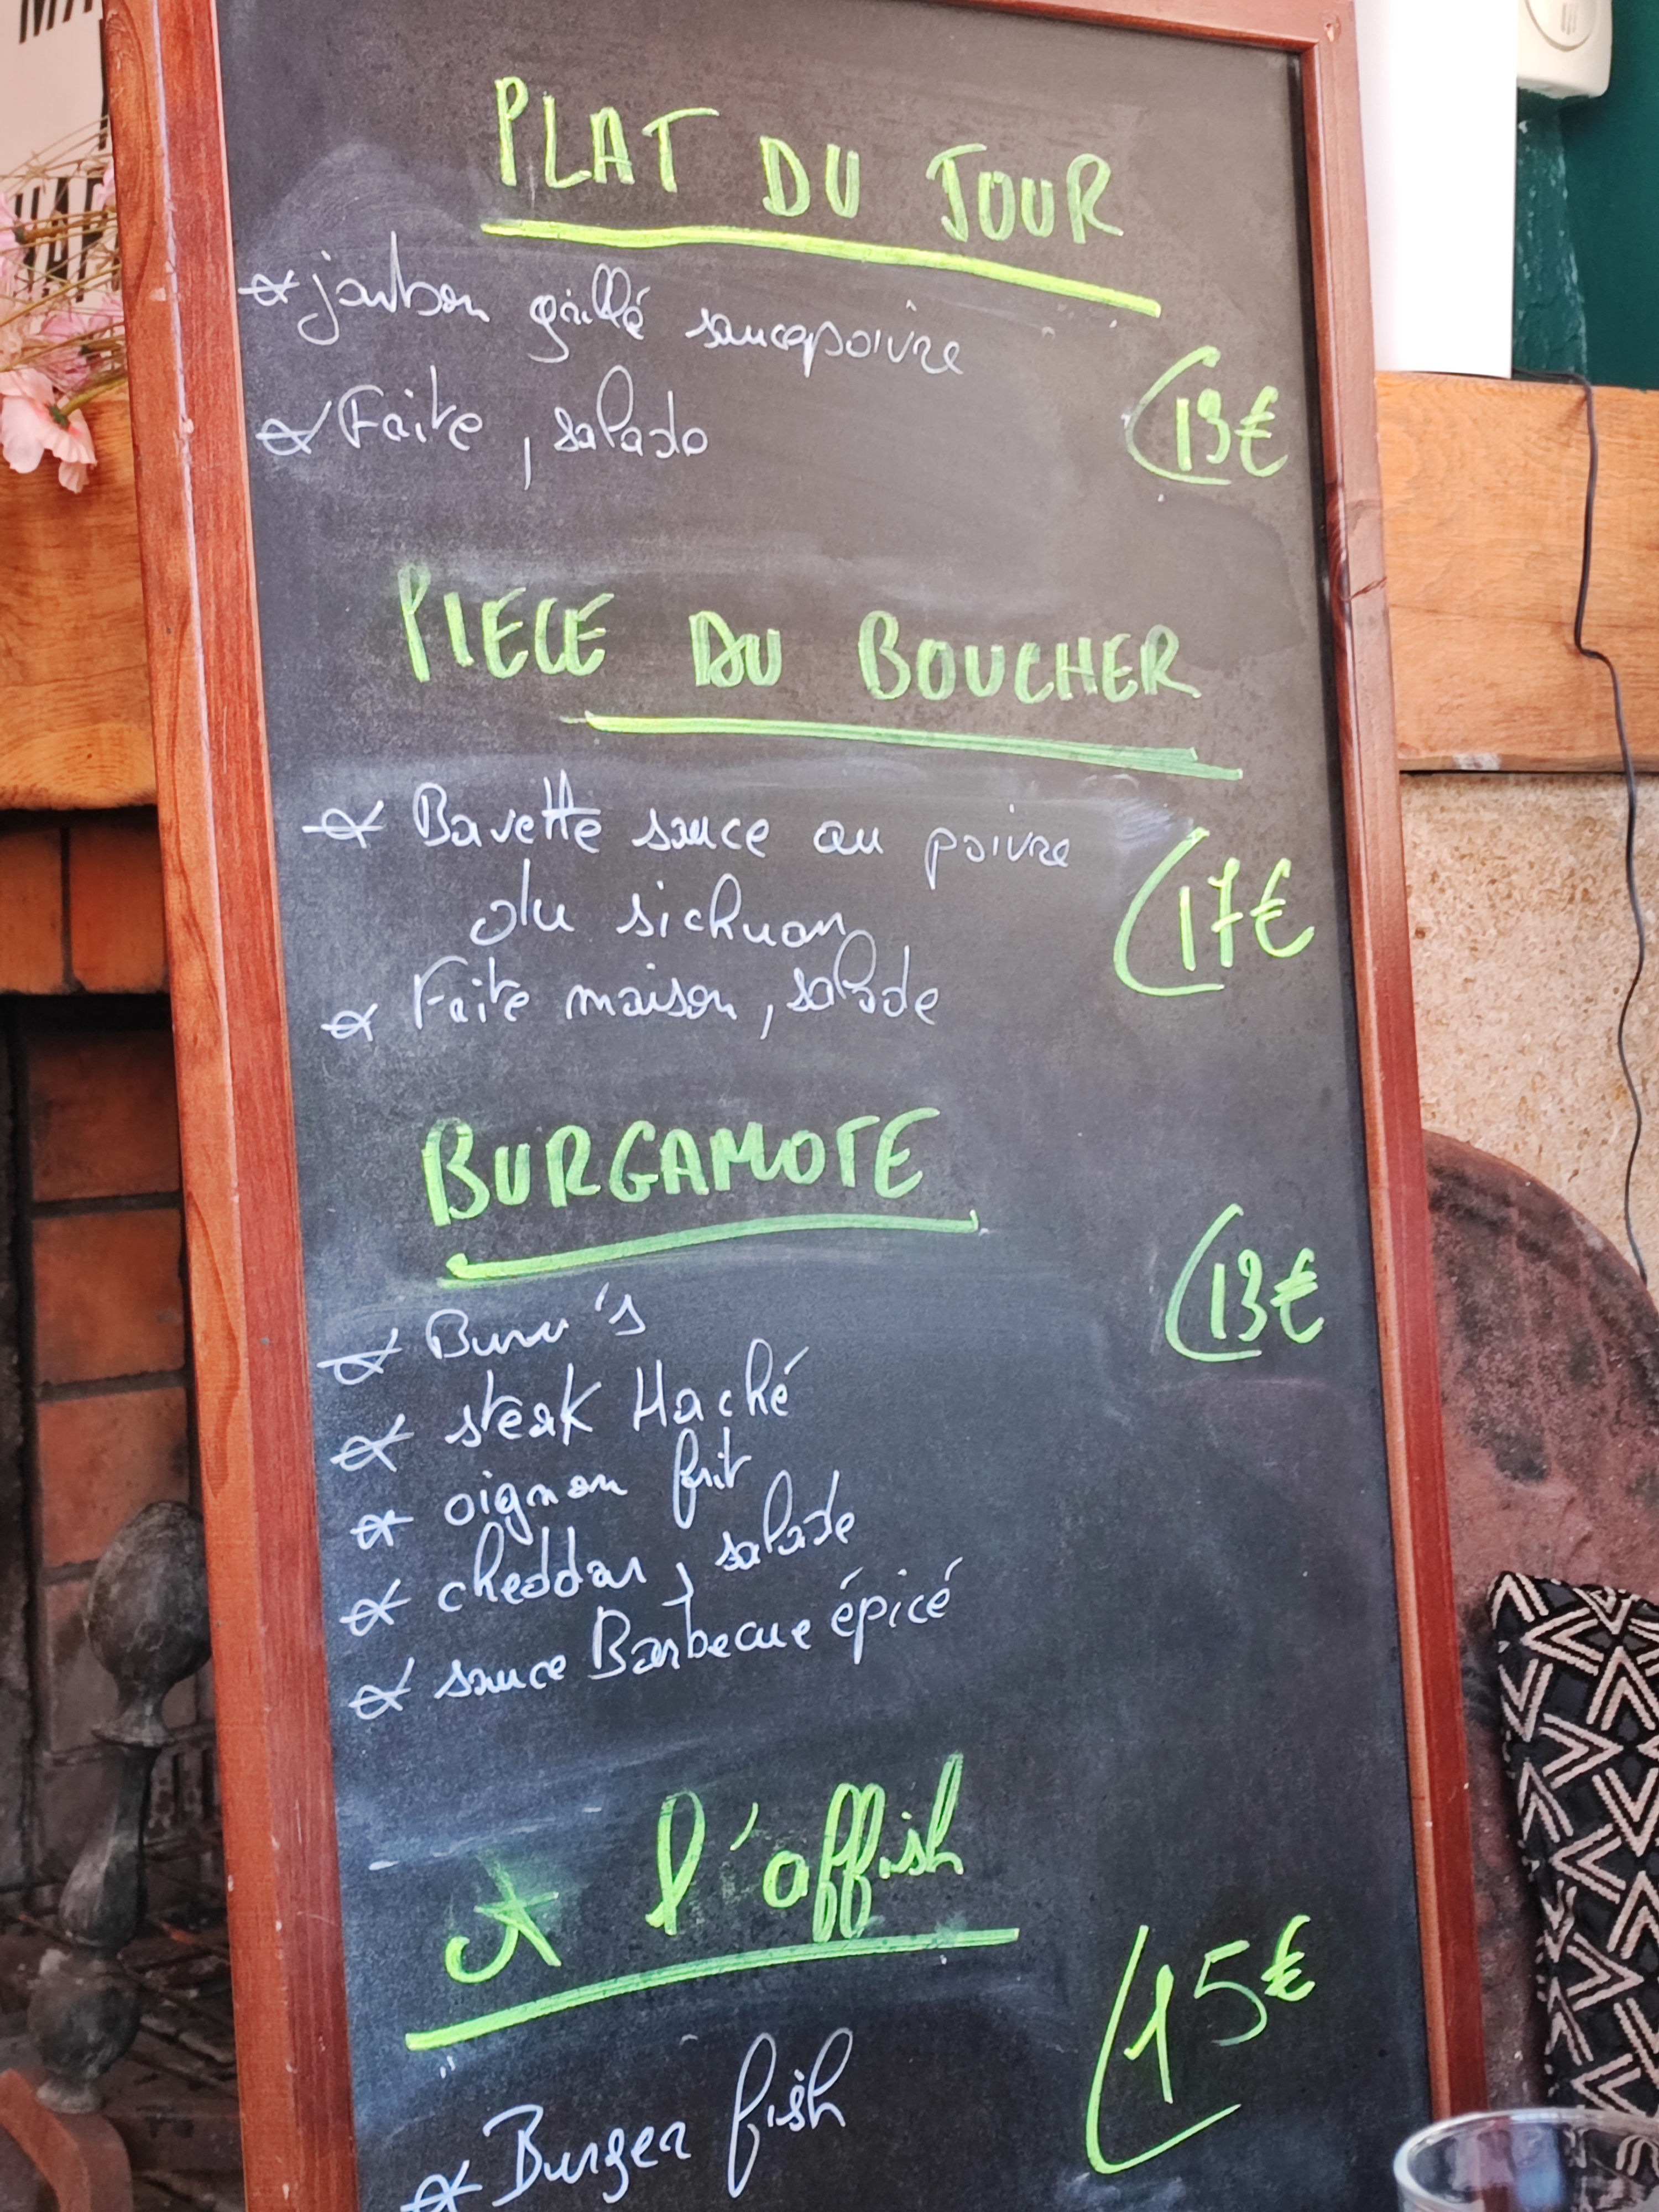 PLAT DU JOUR
jambon grillé sauce poivre
Faite, salade
13€
PIECE DU BOUCHER
Bavette sauce au poivre
du sichuan
17€
Faite maison, salade
BURGAMOTE
13€
Bun's
steak Haché
oignon frit
cheddar, salade
sauce Barbecue épicé
l'offish
15€
Burger fish